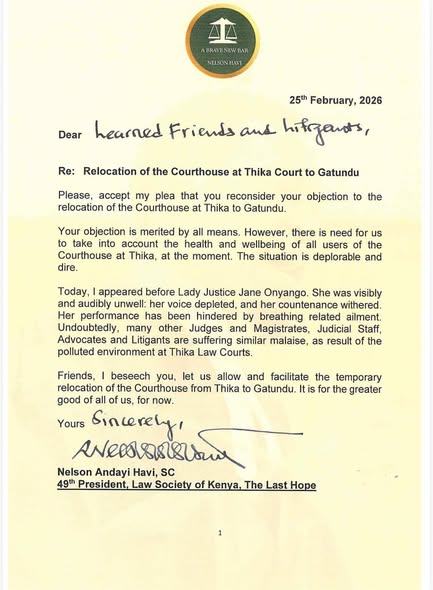 A BRAVE NEW BAR
NELSON HAVI
25th February, 2026
Dear Learned Friends and Litigants,
Re: Relocation of the Courthouse at Thika Court to Gatundu
Please, accept my plea that you reconsider your objection to the
relocation of the Courthouse at Thika to Gatundu.
Your objection is merited by all means. However, there is need for us
to take into account the health and wellbeing of all users of the
Courthouse at Thika, at the moment. The situation is deplorable and
dire.
Today, I appeared before Lady Justice Jane Onyango. She was visibly
and audibly unwell: her voice depleted, and her countenance withered.
Her performance has been hindered by breathing related ailment.
Undoubtedly, many other Judges and Magistrates, Judicial Staff,
Advocates and Litigants are suffering similar malaise, as result of the
polluted environment at Thika Law Courts.
Friends, I beseech you, let us allow and facilitate the temporary
relocation of the Courthouse from Thika to Gatundu. It is for the greater
good of all of us, for now.
Yours Sincerely,
Nelson Andayi Havi, SC
49th President, Law Society of Kenya, The Last Hope
1